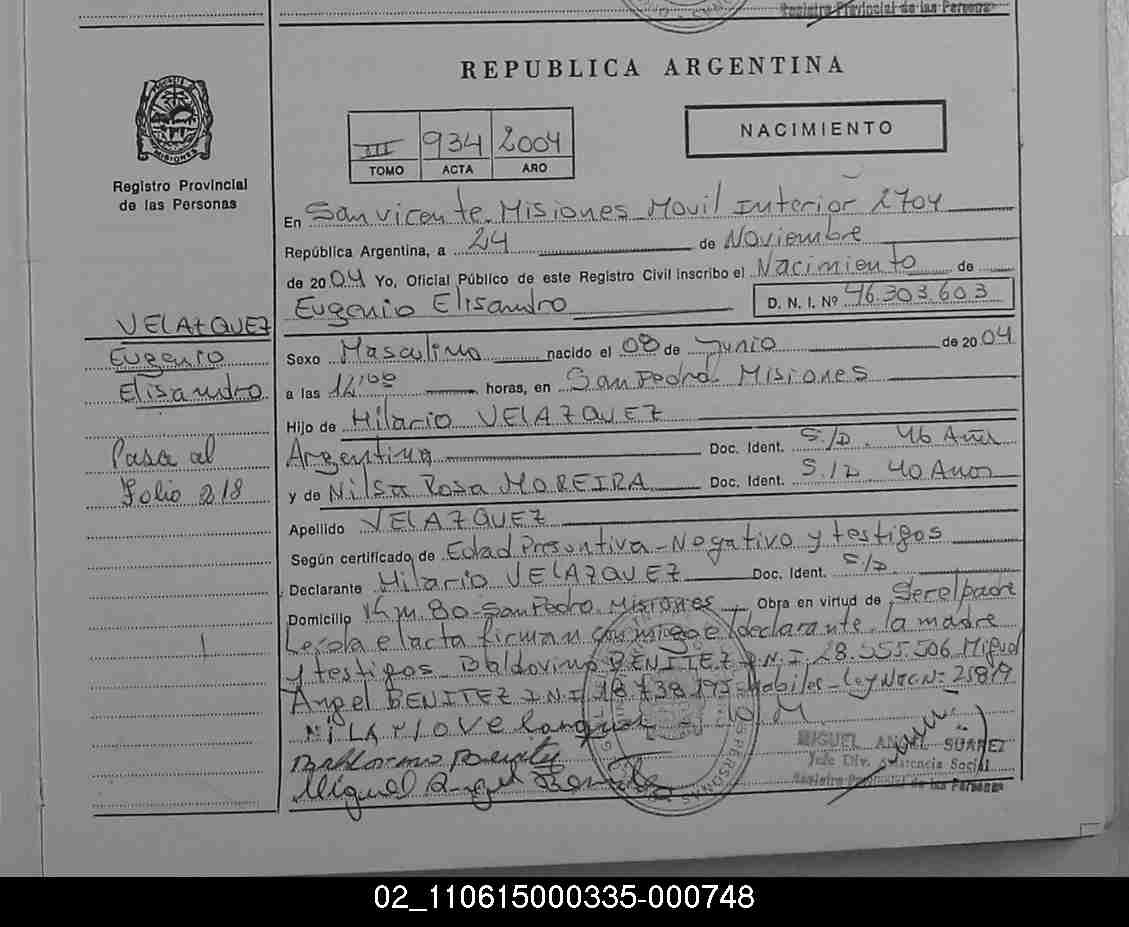 Registro Provincial de las Personas
REPUBLICA ARGENTINA
NACIMIENTO
III 934 2004
TOMO ACTA AÑO
MISIONES
Registro Provincial
de las Personas
En San vicente. Misiones Movil Interior 2704
República Argentina, a 24 de Noviembre
de 2004 Yo, Oficial Público de este Registro Civil inscribo el Nacimiento de
Eugenio Elisandro D. N. I. Nº 46.303.603
VELAZQUEZ
Eugenio
Elisandro
Pasa al
Folio 218
Sexo Masculino nacido el 08 de Junio de 2004
a las 12,00 horas, en San Pedro. Misiones
Hijo de Hilario VELAZQUEZ
Argentina Doc. Ident. S./D. 46 Años
y de Nilsa Rosa MOREIRA Doc. Ident. S./D 40 Anos
Apellido VELAZQUEZ
Según certificado de Edad Presuntiva - Negativo y testigos
Declarante Hilario VELAZQUEZ Doc. Ident. S/D.
Domicilio Km. 80 - San Pedro. Misiones Obra en virtud de Ser el padre
el acta firman conmigo el declarante, la madre
y testigos Baldovino BENITEZ D.N.I. 28.555.506 Miguel
Angel BENITEZ D.N.I. Ley Nac Nº 25819
Miguel Angel
MIGUEL ANGEL SUAREZ
Jefe Div. Asistencia Social
Registro Provincial de las Personas
02_110615000335-000748